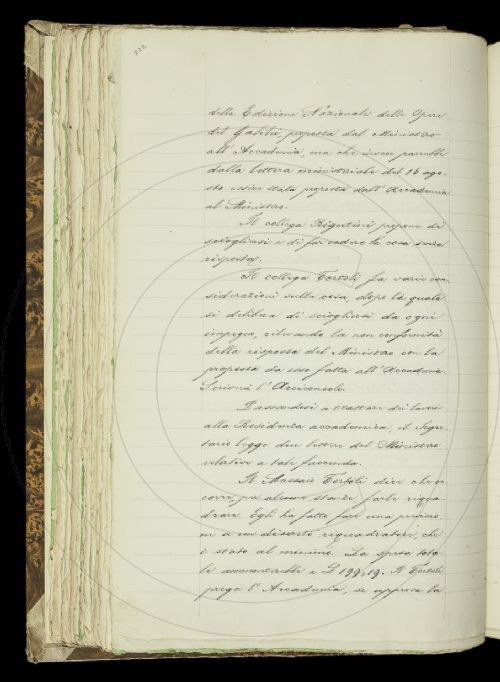 della Edizione Nazionale delle Opere
del Galileo, proposta dal Ministero
all'Accademia, ma che invece parrebbe
dalla lettera ministeriale del 16 ago-
sto essere stata proposta dall'Accademia
al Ministero.
Il collega Rigutini propone di
sciogliersi e di far cadere la cosa senza
risposta.
Il collega Tortoli fa varie con-
siderazioni sulla cosa, dopo le quali
si delibera di sciogliersi da ogni
impegno, rilevando la non conformità
della risposta del Ministero con la
proposta da esso fatta all'Accademia.
Scriverà l'Arciconsolo.
Passandosi a trattare dei lavori
alla Residenza accademica, il Segre-
tario legge due lettere del Ministero
relative a tale faccenda.
Il Massaio Tortoli dice che oc-
corre, per alcune stanze, farle riqua-
drare. Egli ha fatto fare una perizia
a un discreto riquadratore, che
è stato al minimo. La spesa tota-
le ammonterebbe a L 199,19. Il Tortoli
prega l'Accademia, se approva la